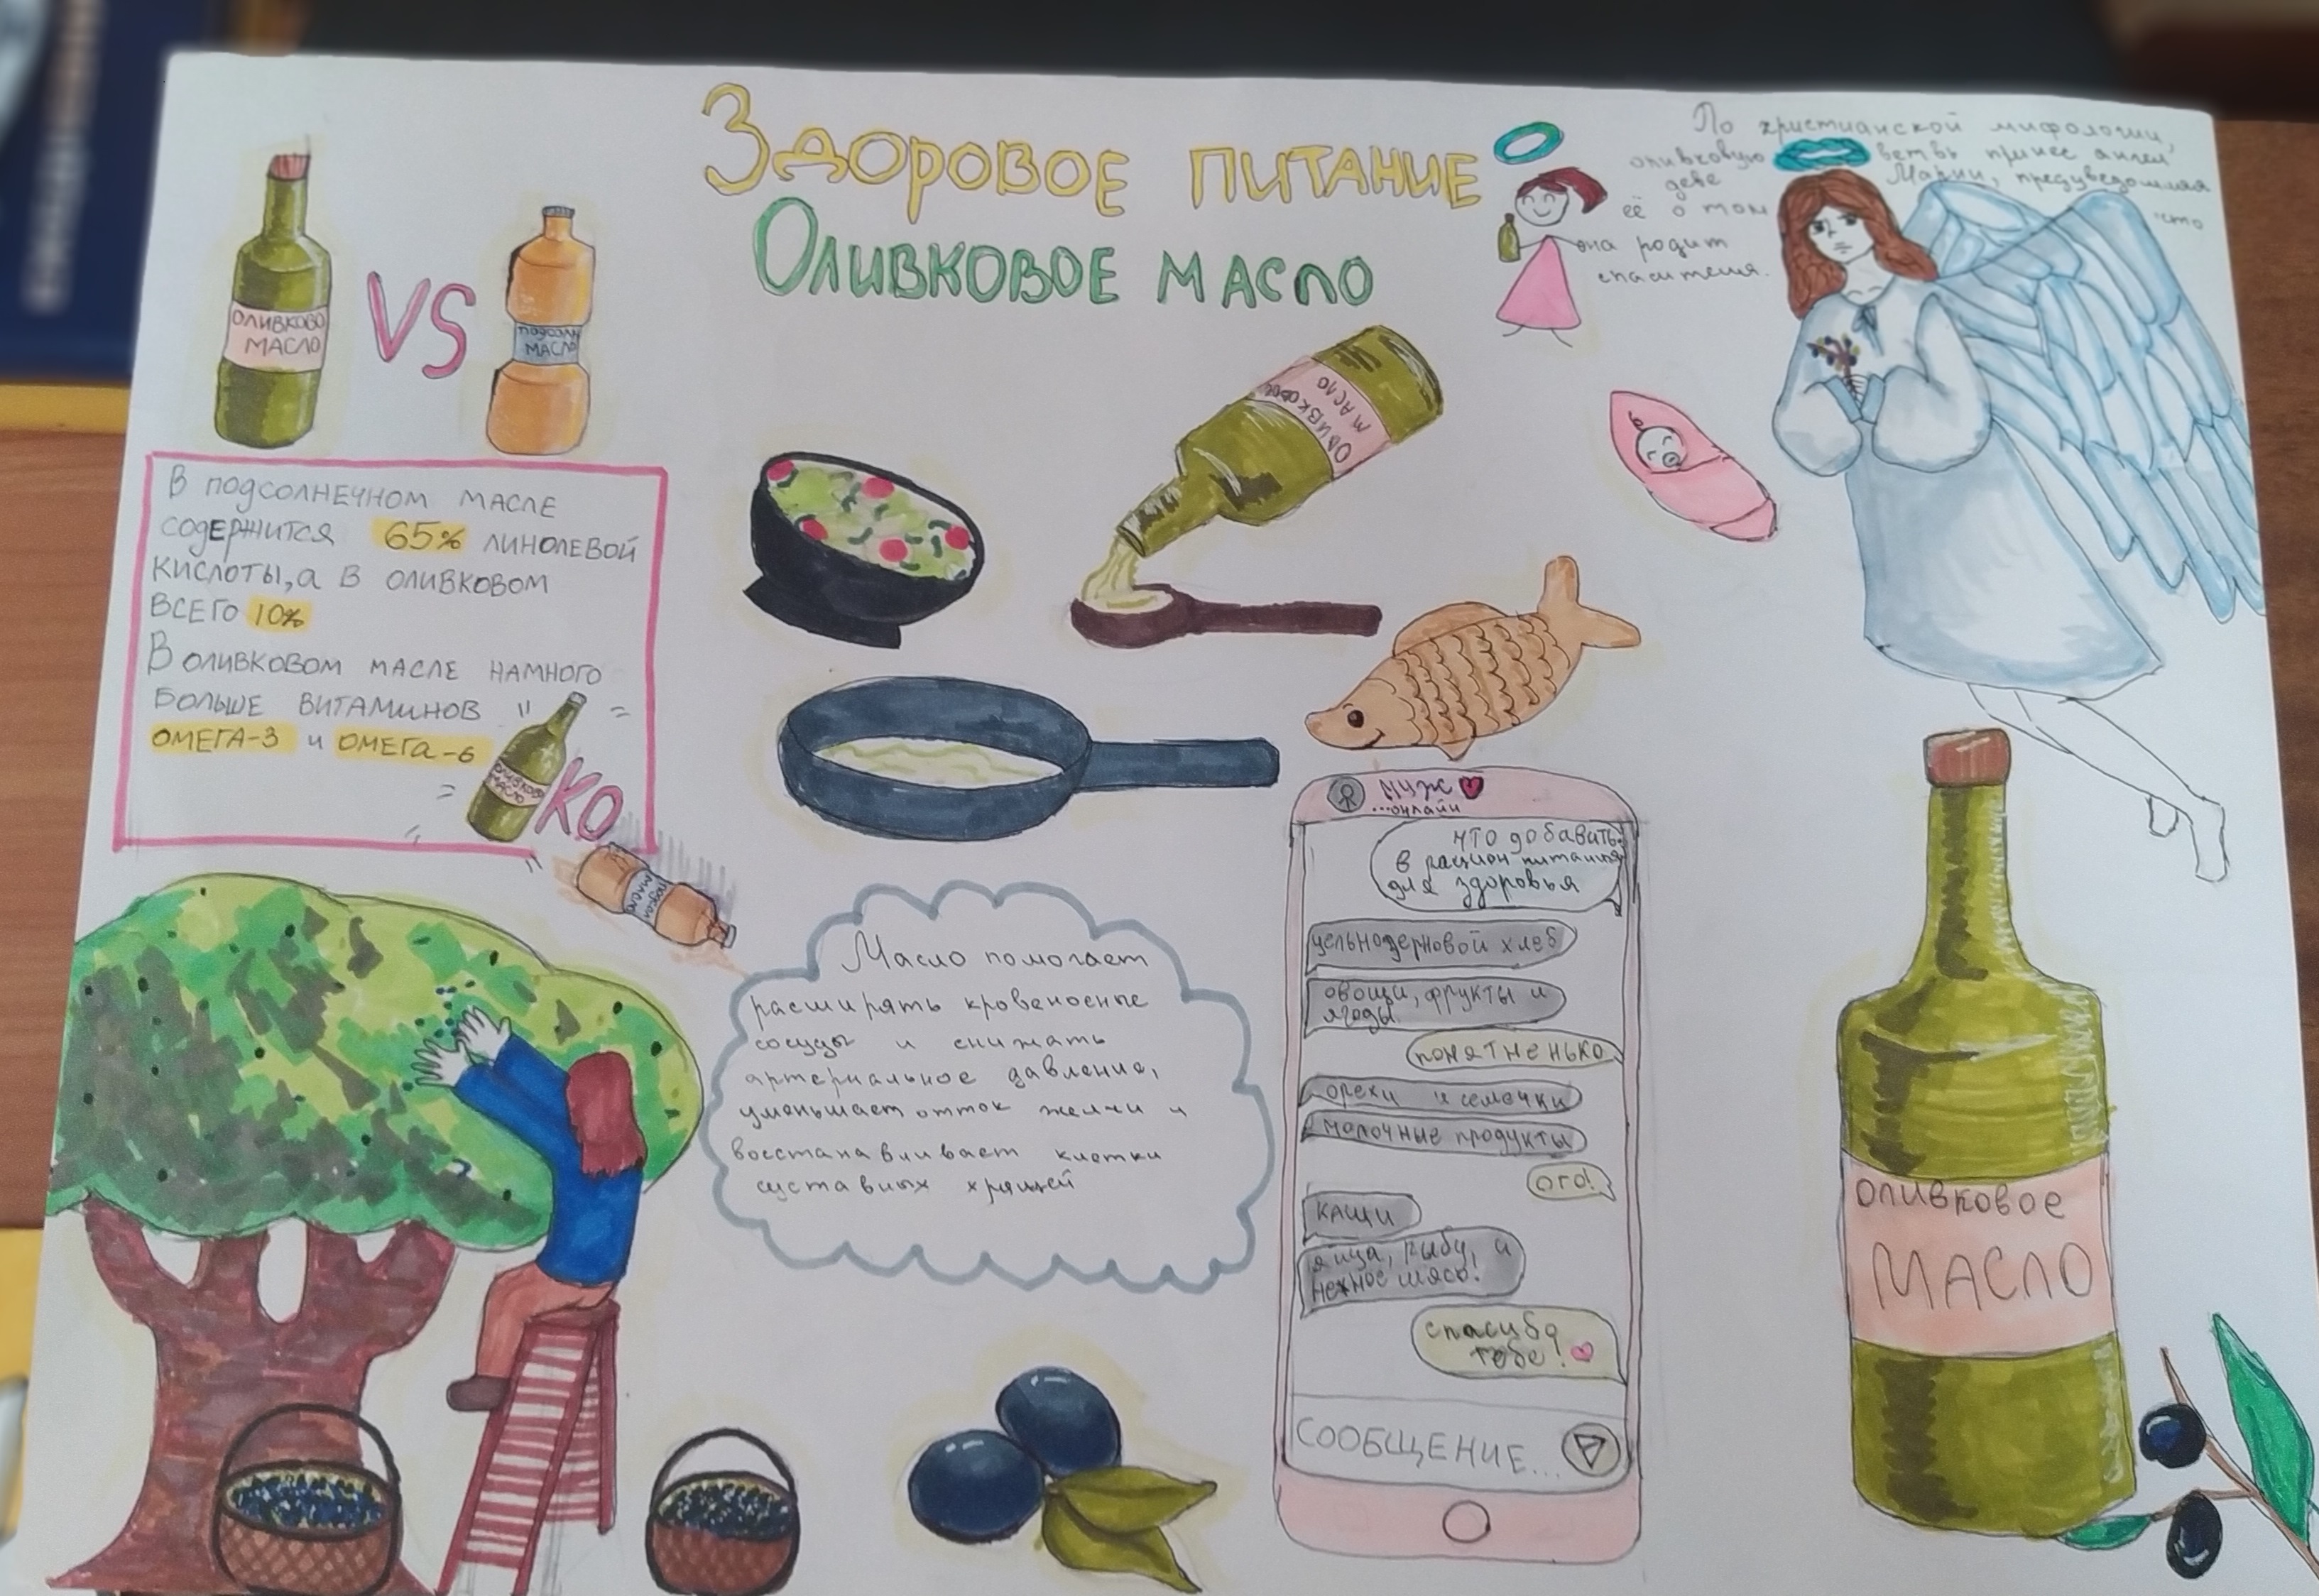 Здоровое питание
Оливковое масло
По христианской мифологии,
оливковую ветвь принес ангел
деве Марии, предуведомляя
её о том что
она родит
спасителя.
ОЛИВКОВО
МАСЛО
VS
ПОДСОЛН
МАСЛО
В подсолнечном масле
содержится 65% линолевой
кислоты, а в оливковом
всего 10%
В оливковом масле намного
больше витаминов
омега-3 и омега-6
ОЛИВКОВО
МАСЛО
КО
ПОДСОЛ
МАСЛО
ОЛИВКОВОЕ
МАСЛО
Масло помогает
расширять кровеносные
сосуды и снижать
артериальное давление,
уменьшает отток желчи и
восстанавливает клетки
суставных хрящей
Муж
...онлайн
что добавить
в рацион питания
для здоровья
цельнозерновой хлеб
овощи, фрукты и
ягоды.
понятненько
орехи и семечки
молочные продукты
ого!
каши
яйца, рыбу, и
нежное мясо!
спасибо
тебе!
СООБЩЕНИЕ...
ОЛИВКОВОЕ
МАСЛО